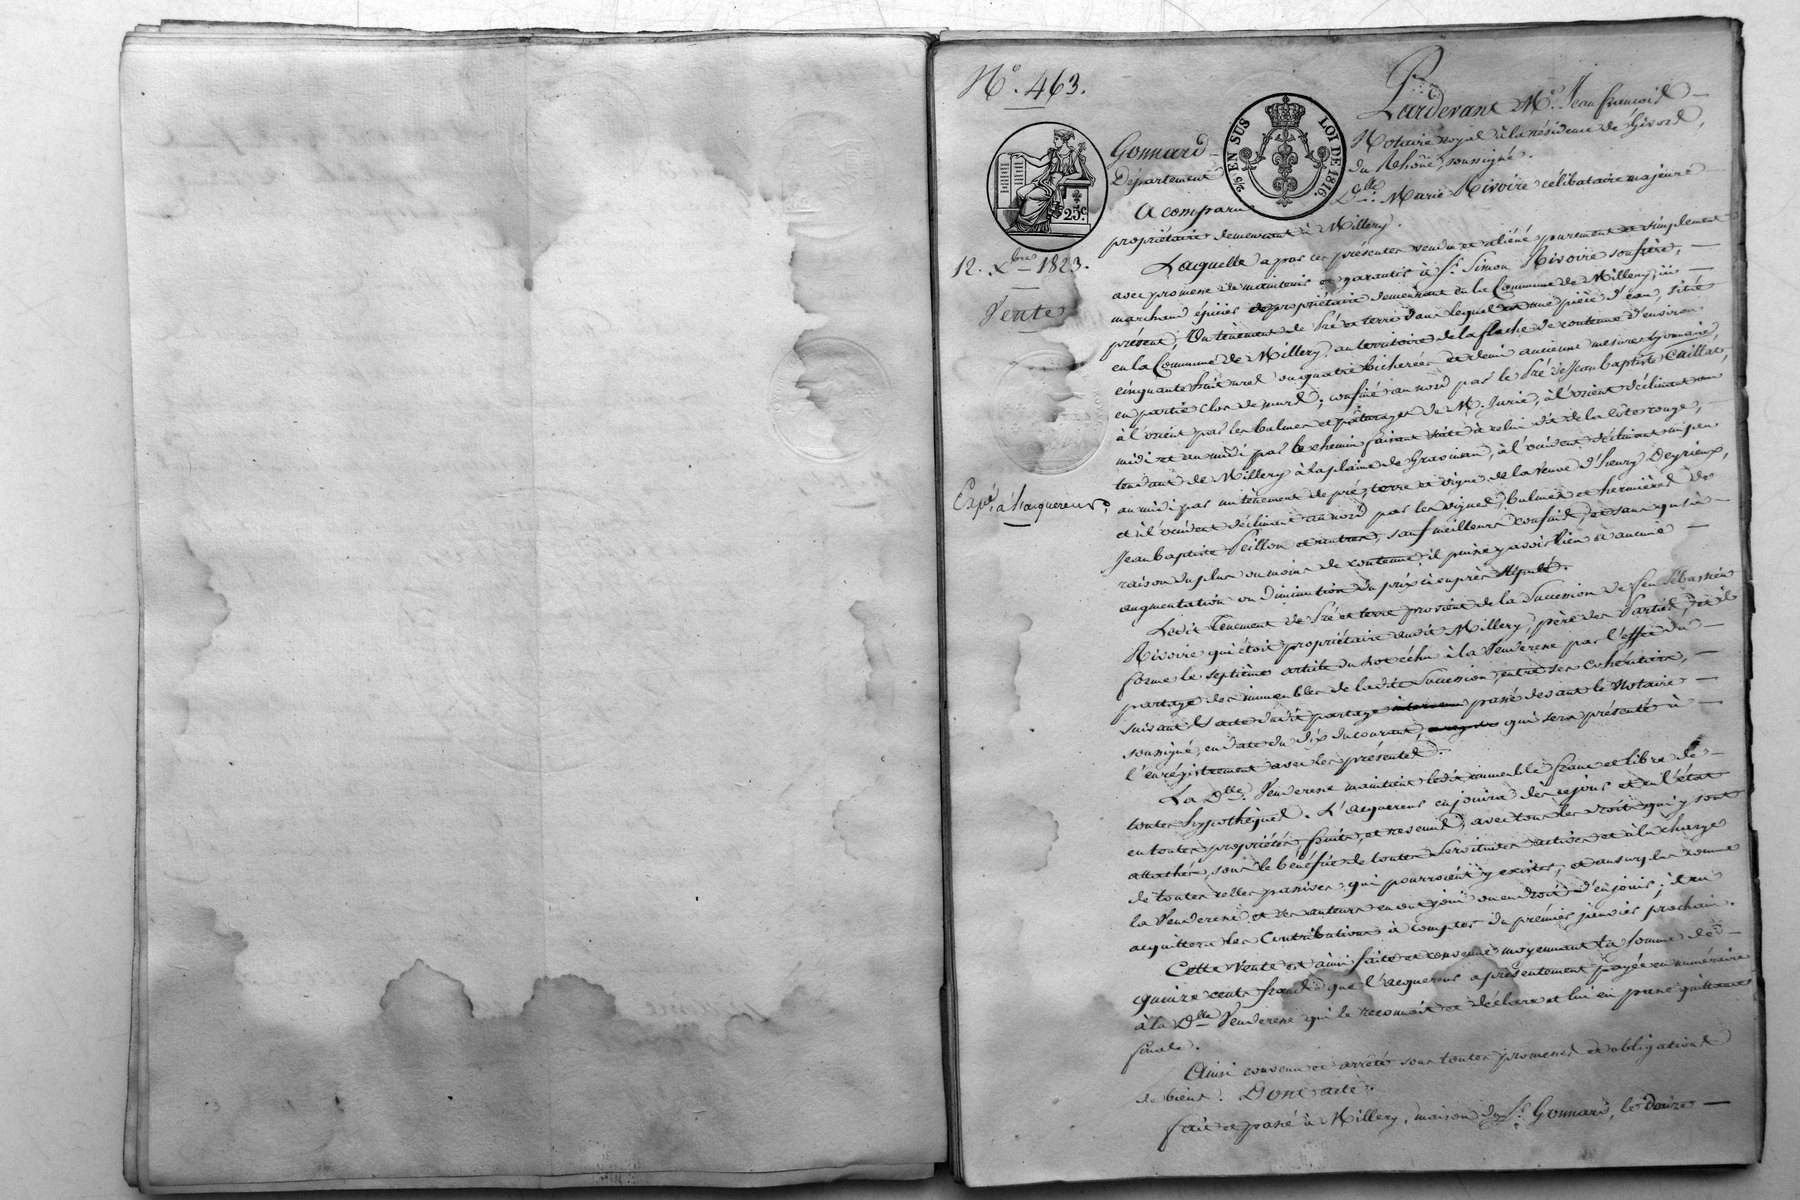 N.° 463.
Pardevant M.e Jean françois
Gonnard Notaire royal à la résidence de Givors,
Département du Rhône, soussigné.
EN SUS LOI DE 1816
25c
A comparu D.lle Marie Rivoire célibataire majeure
propriétaire demeurant à Millery.
12. Xbre 1823.
Vente
Laquelle a par ces présentes vendu et aliéné purement et simplement
avec promesse de maintenir et garantir à S.r Simon Rivoire son frère,
marchand épicier et propriétaire demeurant en la Commune de Millery, ici
présent, Un tènement de Pré et terre dans lequel est une pièce d'eau, situé
en la Commune de Millery, au territoire de la flache de contenue d'environ
cinquante huit ares ou quatre bicherées et demi ancienne mesure Lyonnaise,
en partie clos de murs; confiné au nord par le Pré de Jean baptiste Caillat,
à l'orient par les balmes et pâturages de M. Jurie, à l'orient déclinant au
midi et au midi par le chemin faisant suite à celui dit de la Côte rouge,
tendant de Millery à la plaine de Gravinan, à l'occident déclinant un peu
au midi par un tènement de pré, terre et vigne de la veuve d'henry Deyrieux,
et à l'occident déclinant au nord par les vignes, balmes et hermières de
Jean baptiste Seillon et autres, sauf meilleurs confins, et sans qu'à
raison du plus ou moins de contenue, il puisse y avoir lieu à aucune
augmentation ou diminution du prix ci-après stipulé.
Expé. à l'acquereur.
Ledit Tènement de Pré et terre provient de la Succession de feu Sébastien
Rivoire qui étoit propriétaire audit Millery, père des Parties, et il
forme le septième article du lot échu à la Venderesse par l'effet du
partage des immeubles de ladite Succession, entre ses cohéritiers,
suivant l'acte dudit partage passé devant le Notaire
soussigné, en date du dix du courant, qui sera présenté à
l'enrégistrement avec les présentes.
La D.lle Venderesse maintient ledit immeuble franc et libre de
toutes hypothèques. L'acquereur en jouira dès ce jour et en l'état
en toutes propriétés, fruits, et revenus, avec tous les droits qui y sont
attachés, sous le bénéfice de toutes Servitudes actives et à la charge
de toutes celles passives qui pourroient y exister, et ainsi que comme
la Venderesse et ses auteurs en ont joui ou eu droit d'en jouir; il en
acquittera les Contributions à compter du premier janvier prochain.
Cette Vente est ainsi faite et convenue moyennant la somme de
quinze cents francs que l'acquereur a présentement payée en numéraire
à la D.lle Venderesse qui le reconnoit et déclare et lui en passe quittance
finale.
Ainsi convenu et arrêté sous toutes promesses et obligations
de biens. Dont acte.
fait et passé à Millery, maison du S.r Gonnard, le douze